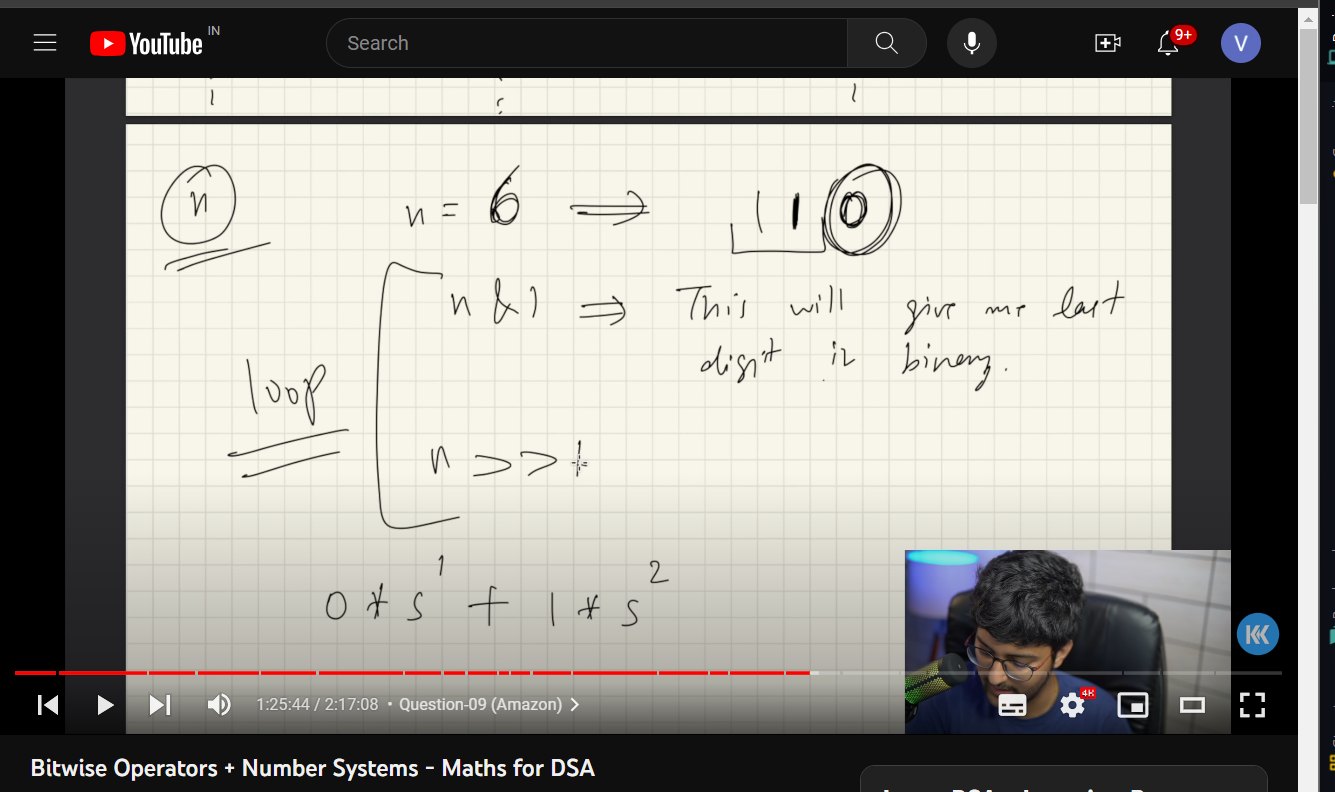 YouTube IN
Search
9+
V
n
n = 6 ⟹ 1 1 0
n & 1 ⟹ This will give me last
digit in binary.
loop
n >> 1
0 * 5¹ + 1 * 5²
KK
4K
1:25:44 / 2:17:08 • Question-09 (Amazon)
Bitwise Operators + Number Systems - Maths for DSA